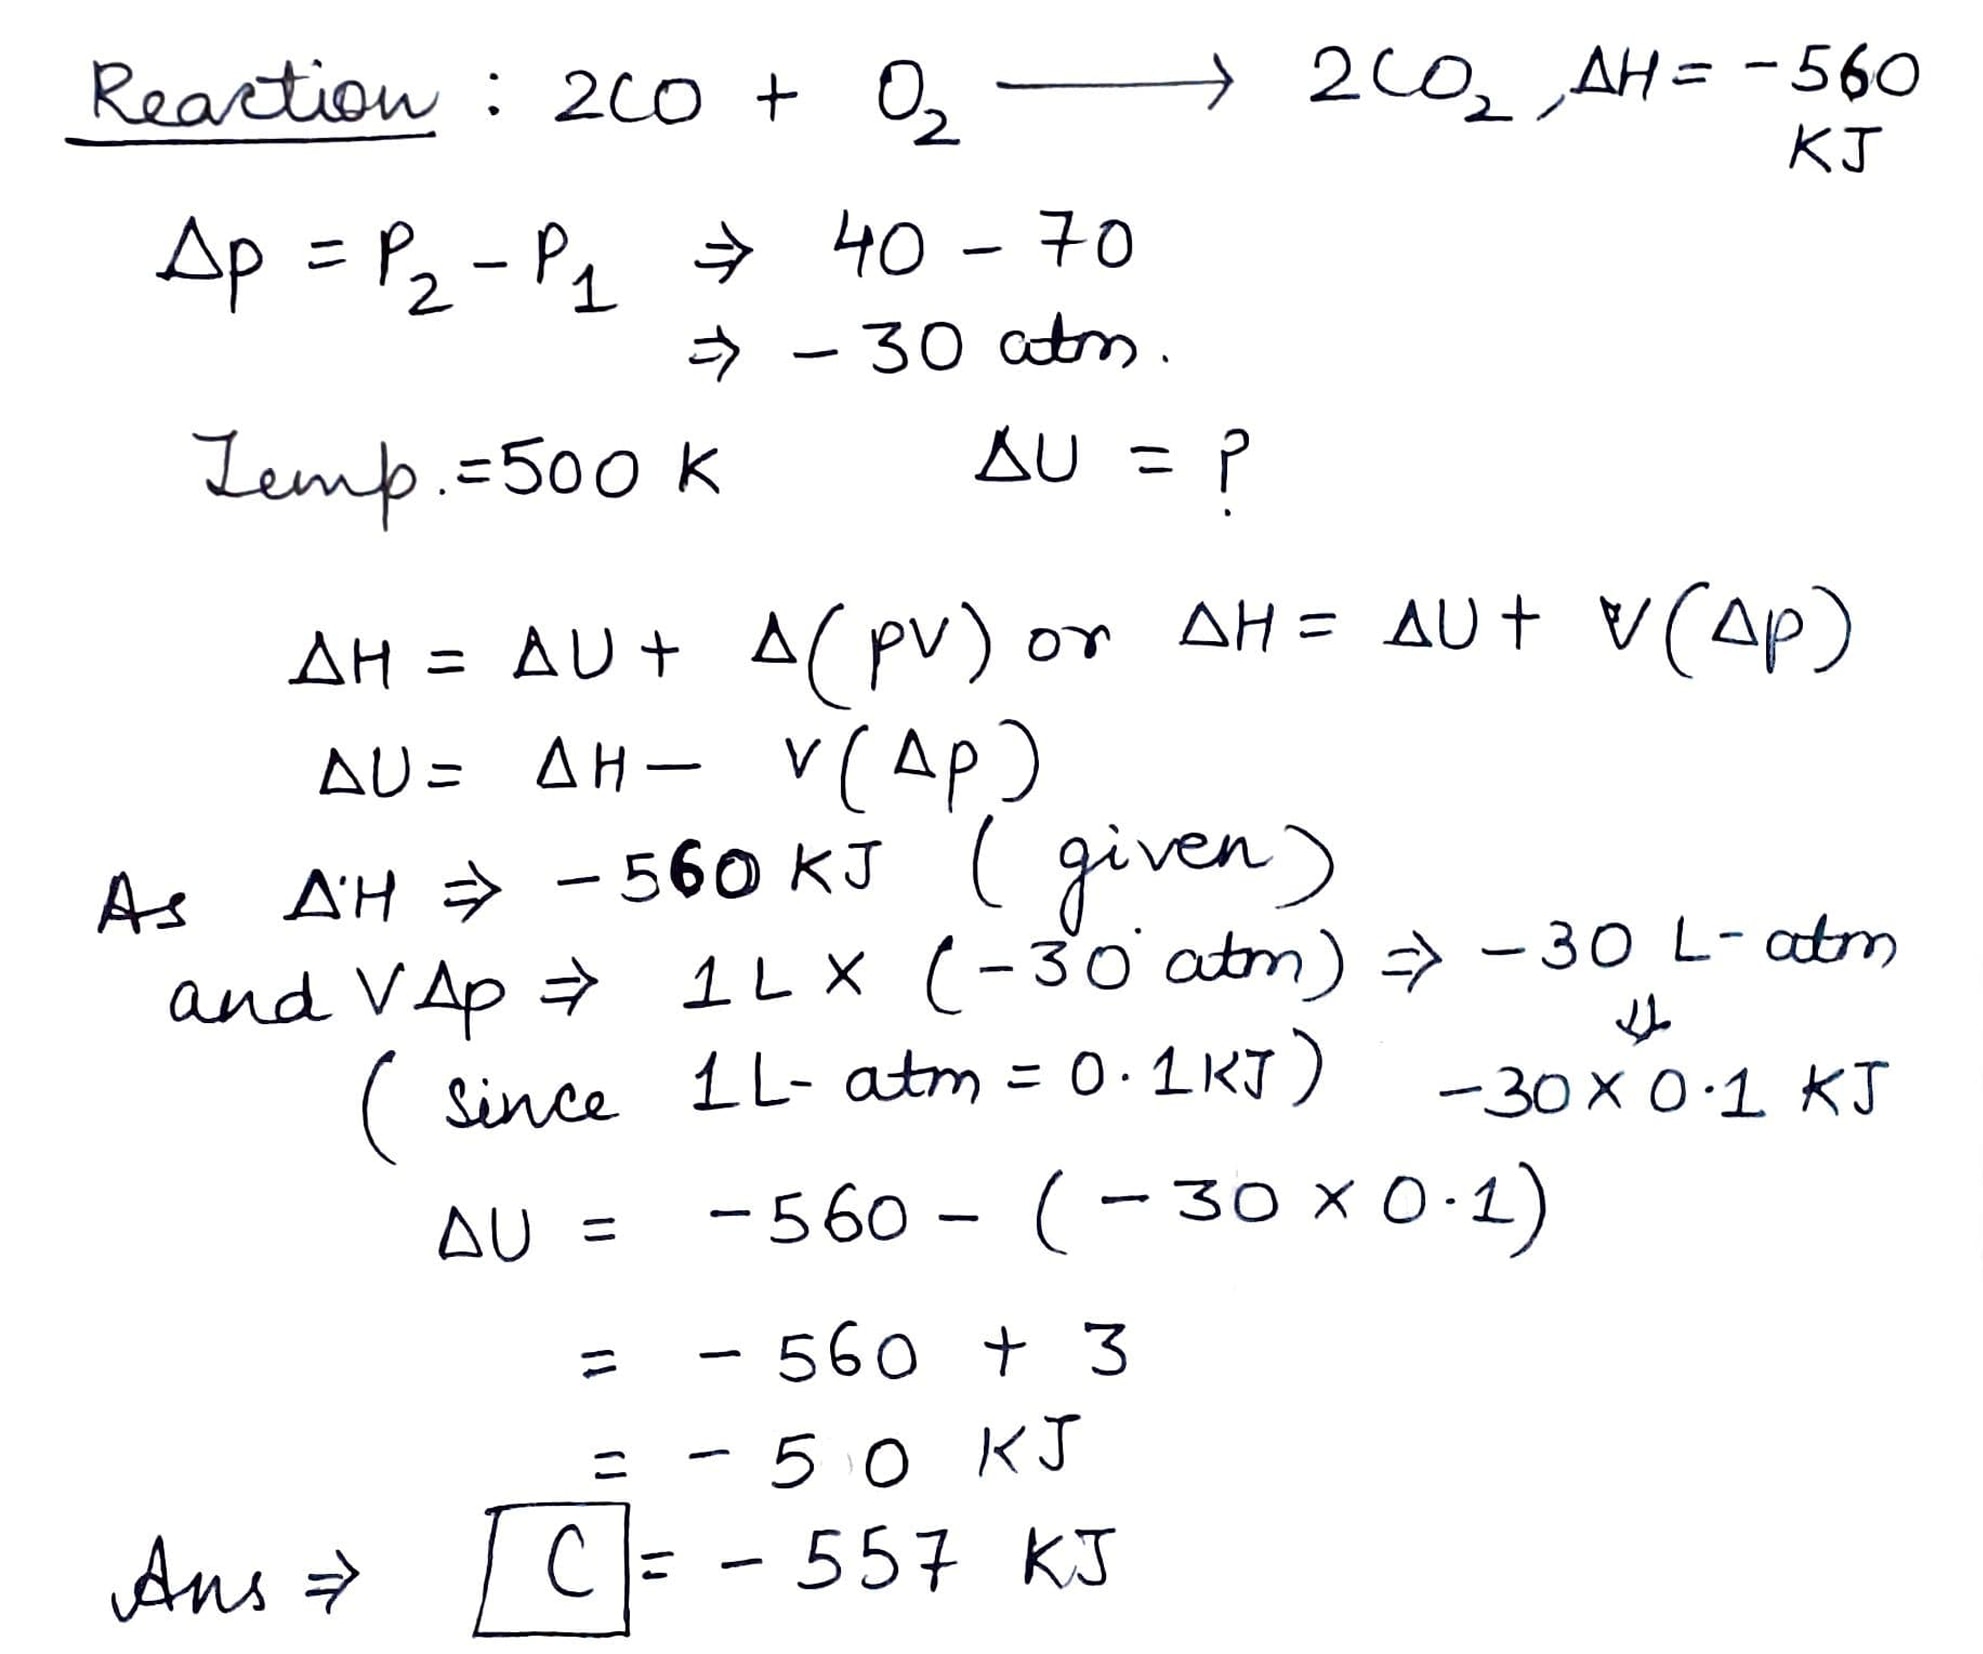 Reaction : 2CO + O₂ ⟶ 2CO₂, ΔH = -560 KJ
Δp = P₂ - P₁ ⇒ 40 - 70
⇒ - 30 atm.
Temp. = 500 K ΔU = ?
ΔH = ΔU + Δ(PV) or ΔH = ΔU + V(Δp)
ΔU = ΔH - V(Δp)
As ΔH ⇒ - 560 KJ (given)
and VΔp ⇒ 1 L x (-30 atm) ⇒ - 30 L-atm
⇓
(since 1 L-atm = 0.1 KJ) -30 x 0.1 KJ
ΔU = - 560 - (- 30 x 0.1)
= - 560 + 3
= - 5 0 KJ
Ans ⇒ C = - 557 KJ